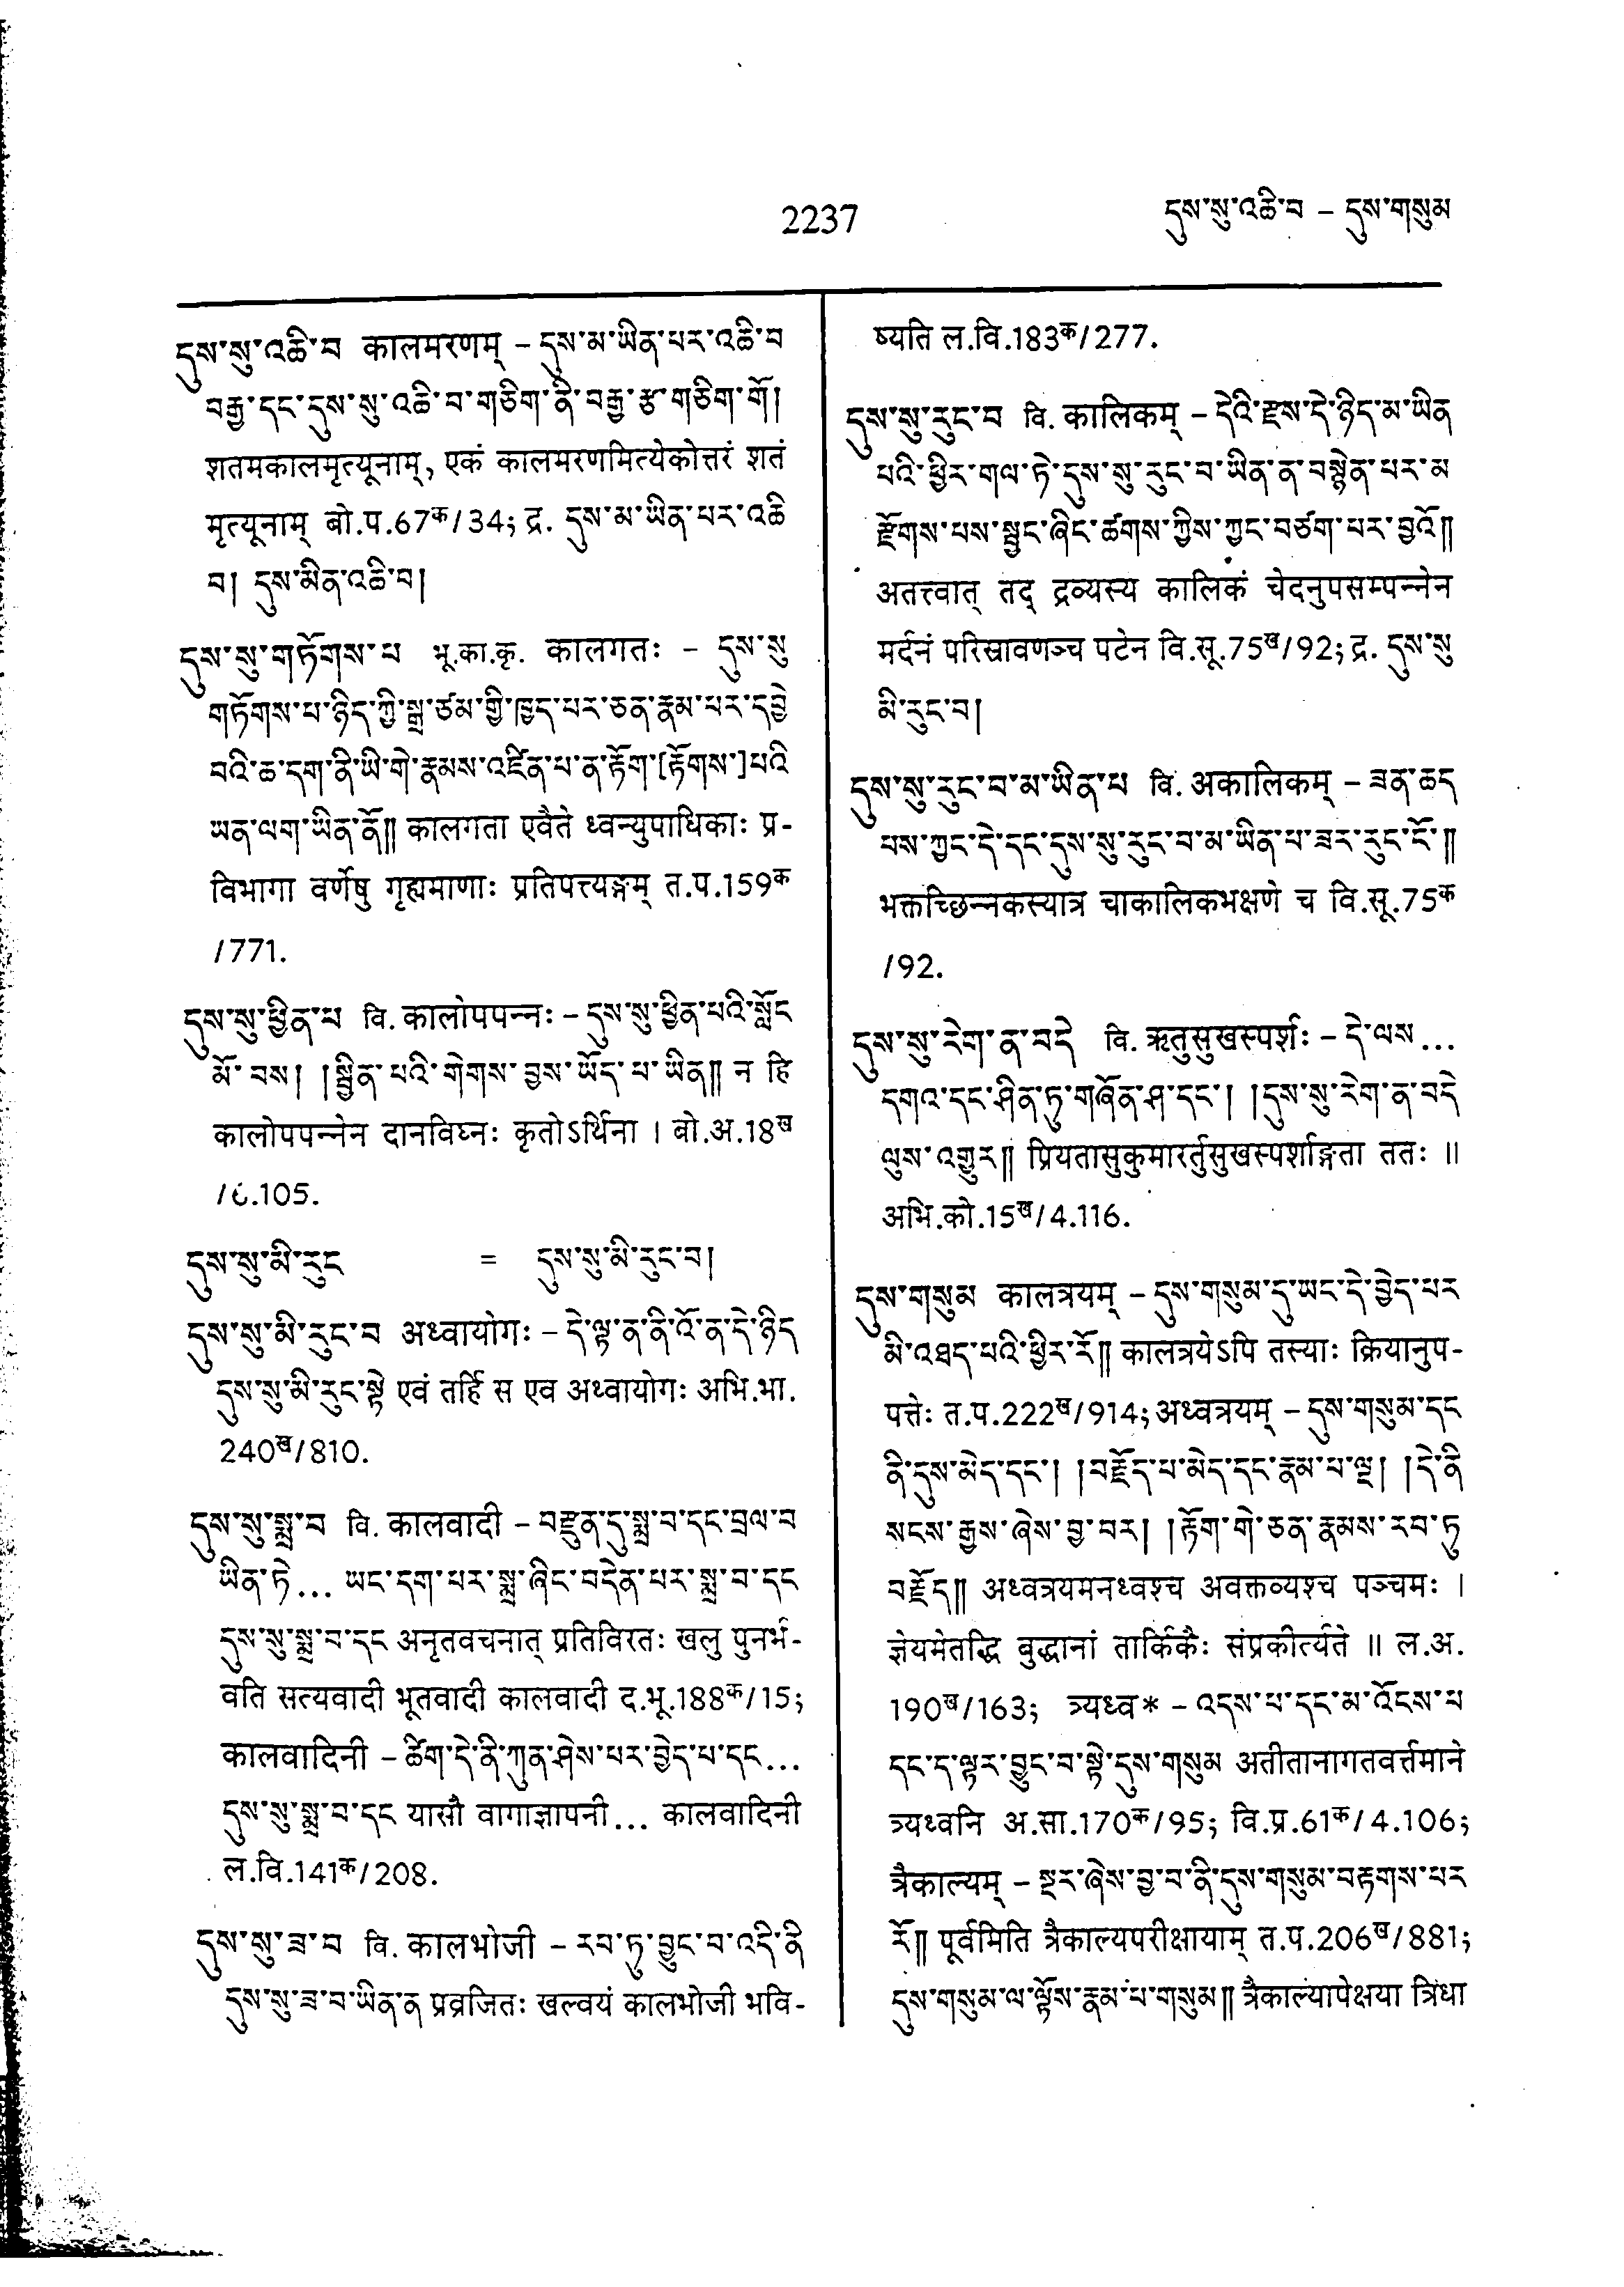 2237
དུས་སུ་འཆི་བ – དུས་གསུམ
དུས་སུ་འཆི་བ कालमरणम् – དུས་མ་ཡིན་པར་འཆི་བ
བརྒྱ་དང་དུས་སུ་འཆི་བ་གཅིག་ནི་བརྒྱ་རྩ་གཅིག་གོ།
शतमकालमृत्यूनाम्, एकं कालमरणमित्येकोत्तरं शतं
मृत्यूनाम् बो.प.67क/34; द्र. དུས་མ་ཡིན་པར་འཆི
བ། དུས་མིན་འཆི་བ།
དུས་སུ་གཏོགས་པ भू.का.कृ. कालगतः – དུས་སུ
གཏོགས་པ་ཉིད་ཀྱི་སྒྲ་ཙམ་གྱི་ཁྱད་པར་ཅན་རྣམ་པར་དབྱེ
བའི་ཆ་དག་ནི་ཡི་གེ་རྣམས་འཛིན་པ་ན་རྟོག་[རྟོགས་]པའི
ཡན་ལག་ཡིན་ནོ༎ कालगता एवैते ध्वन्युपाधिकाः प्र-
विभागा वर्णेषु गृह्यमाणाः प्रतिपत्त्यङ्गम् त.प.159क
/771.
དུས་སུ་ཕྱིན་པ वि. कालोपपन्नः – དུས་སུ་ཕྱིན་པའི་སློང
མོ་བས། །སྦྱིན་པའི་གེགས་བྱས་ཡོད་པ་ཡིན༎ न हि
कालोपपन्नेन दानविघ्नः कृतोऽर्थिना । बो.अ.18ख
/6.105.
དུས་སུ་མི་རུང = དུས་སུ་མི་རུང་བ།
དུས་སུ་མི་རུང་བ अध्वायोगः – དེ་ལྟ་ན་ནི་འོ་ན་དེ་ཉིད
དུས་སུ་མི་རུང་སྟེ एवं तर्हि स एव अध्वायोगः अभि.भा.
240ख/810.
དུས་སུ་སྨྲ་བ वि. कालवादी – བརྫུན་དུ་སྨྲ་བ་དང་བྲལ་བ
ཡིན་ཏེ... ཡང་དག་པར་སྨྲ་ཞིང་བདེན་པར་སྨྲ་བ་དང
དུས་སུ་སྨྲ་བ་དང अनृतवचनात् प्रतिविरतः खलु पुनर्भ-
वति सत्यवादी भूतवादी कालवादी द.भू.188क/15;
कालवादिनी – ཚིག་དེ་ནི་ཀུན་ཤེས་པར་བྱེད་པ་དང...
དུས་སུ་སྨྲ་བ་དང यासौ वागाज्ञापनी... कालवादिनी
ल.वि.141क/208.
དུས་སུ་ཟ་བ वि. कालभोजी – རབ་ཏུ་བྱུང་བ་འདི་ནི
དུས་སུ་ཟ་བ་ཡིན་ན प्रव्रजितः खल्वयं कालभोजी भवि-
ष्यति ल.वि.183क/277.
དུས་སུ་རུང་བ वि. कालिकम् – དེའི་རྫས་དེ་ཉིད་མ་ཡིན
པའི་ཕྱིར་གལ་ཏེ་དུས་སུ་རུང་བ་ཡིན་ན་བསྙེན་པར་མ
རྫོགས་པས་སྦྱང་ཞིང་ཚགས་ཀྱིས་ཀྱང་བཙག་པར་བྱའོ༎
अतत्त्वात् तद् द्रव्यस्य कालिकं चेदनुपसम्पन्नेन
मर्दनं परिस्रावणञ्च पटेन वि.सू.75ख/92; द्र. དུས་སུ
མི་རུང་བ།
དུས་སུ་རུང་བ་མ་ཡིན་པ वि. अकालिकम् – ཟན་ཆད
པས་ཀྱང་དེ་དང་དུས་སུ་རུང་བ་མ་ཡིན་པ་ཟར་རུང་ངོ་༎
भक्तच्छिन्नकस्यात्र चाकालिकभक्षणे च वि.सू.75क
/92.
དུས་སུ་རེག་ན་བདེ वि. ऋतुसुखस्पर्शः – དེ་ལས...
དགའ་དང་ཤིན་ཏུ་གཞོན་ཤ་དང་། །དུས་སུ་རེག་ན་བདེ
ལུས་འགྱུར༎ प्रियतासुकुमारर्तुसुखस्पर्शाङ्गता ततः ॥
अभि.को.15ख/4.116.
དུས་གསུམ कालत्रयम् – དུས་གསུམ་དུ་ཡང་དེ་བྱེད་པར
མི་འཐད་པའི་ཕྱིར་རོ༎ कालत्रयेऽपि तस्याः क्रियानुप-
पत्तेः त.प.222ख/914; अध्वत्रयम् – དུས་གསུམ་དང
ནི་དུས་མེད་དང་། །བརྗོད་པ་མེད་དང་རྣམ་པ་ལྔ། །དེ་ནི
སངས་རྒྱས་ཞེས་བྱ་བར། །རྟོག་གེ་ཅན་རྣམས་རབ་ཏུ
བརྗོད༎ अध्वत्रयमनध्वश्च अवक्तव्यश्च पञ्चमः ।
ज्ञेयमेतद्धि बुद्धानां तार्किकैः संप्रकीर्त्यते ॥ ल.अ.
190ख/163; त्र्यध्व* – འདས་པ་དང་མ་འོངས་པ
དང་ད་ལྟར་བྱུང་བ་སྟེ་དུས་གསུམ अतीतानागतवर्त्तमाने
त्र्यध्वनि अ.सा.170क/95; वि.प्र.61क/4.106;
त्रैकाल्यम् – སྔར་ཞེས་བྱ་བ་ནི་དུས་གསུམ་བརྟགས་པར
རོ༎ पूर्वमिति त्रैकाल्यपरीक्षायाम् त.प.206ख/881;
དུས་གསུམ་ལ་ལྟོས་རྣམ་པ་གསུམ༎ त्रैकाल्यापेक्षया त्रिधा